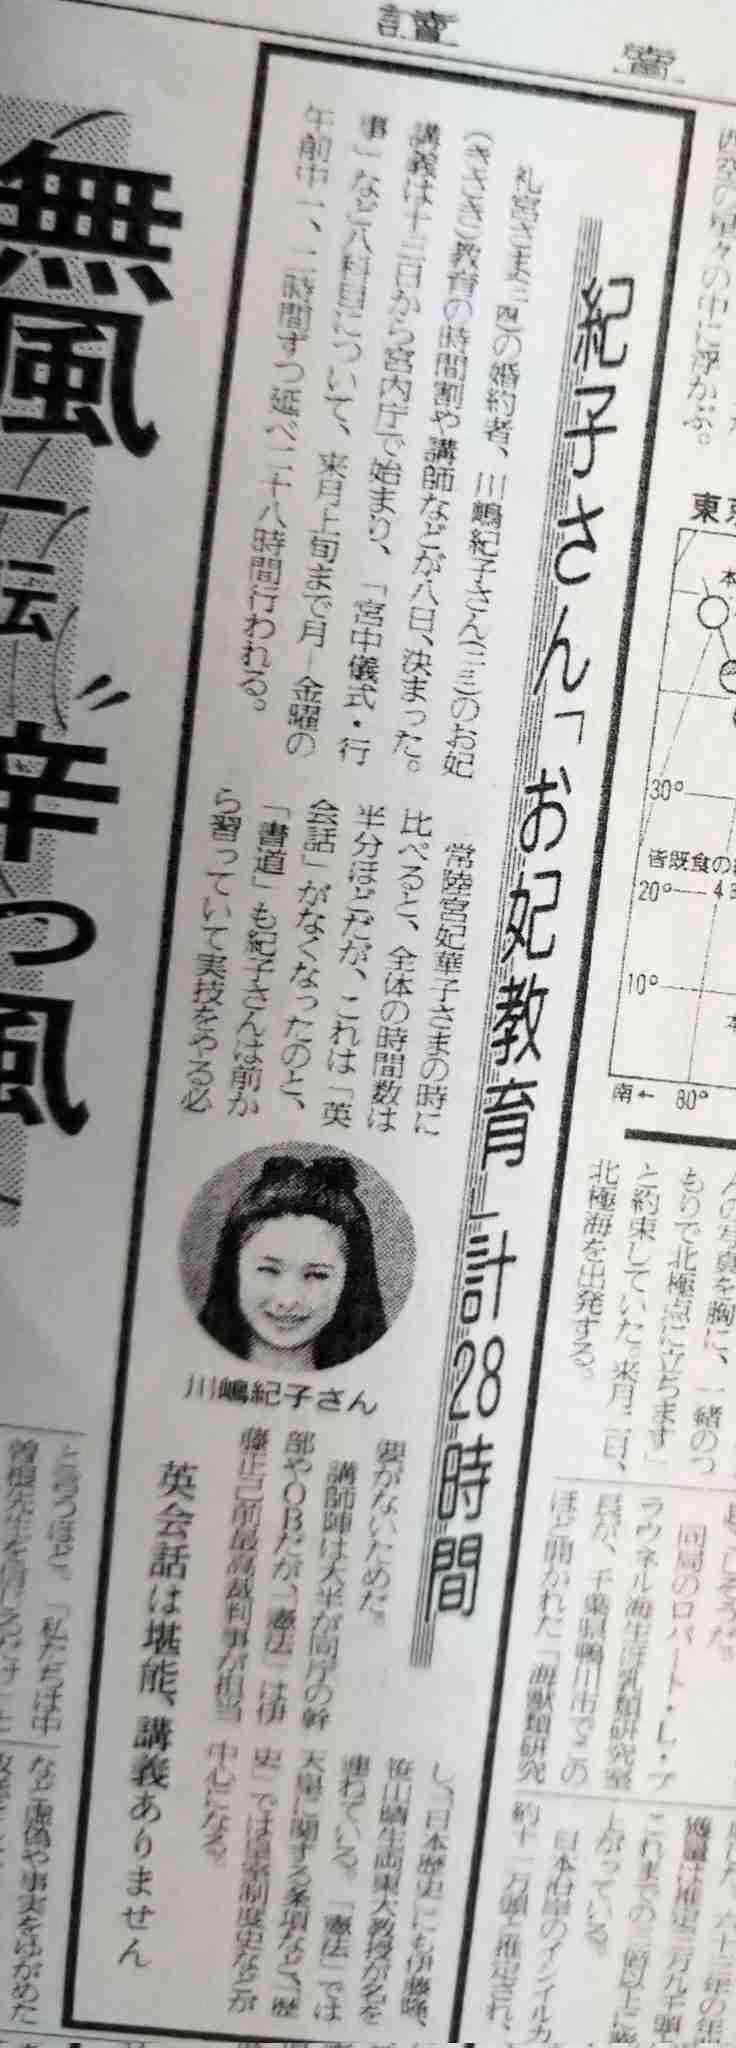 讀賣
紀子さん「お妃教育」計28時間
礼宮さま(二四)の婚約者、川嶋紀子さん(二三)のお妃
(きさき)教育の時間割や講師などが八日、決まった。
講義は十三日から宮内庁で始まり、「宮中儀式・行
事」など八科目について、来月上旬まで月―金曜の
午前中一、二時間ずつ延べ二十八時間行われる。
常陸宮妃華子さまの時に
比べると、全体の時間数は
半分ほどだが、これは「英
会話」がなくなったのと、
「書道」も紀子さんは前か
ら習っていて実技をやる必
川嶋紀子さん
要がないためだ。
講師陣は大半が同庁の幹
部やOBだが、「憲法」は伊
藤正己前最高裁判事が担当
し、「日本歴史」にも伊藤隆、
笹山晴生両東大教授が名を
連ねている。「憲法」では
天皇に関する条項など、「歴
史」では皇室制度史などが
中心になる。
英会話は堪能、講義ありません
無風
辛っ風
の中に浮かぶ。
30°
皆既食の
20°
10°
南← 80°
を胸に、一緒のつ
もりで北極点に立ちます」
と約束していた。来月二日、
北極海を出発する。
同局のロバート・L・ブ
ラウネル海生ほ乳類研究室
長が、千葉県鴨川市でこの
ほど開かれた「海獣類研究
これまでの三倍以上に
上がっている。
日本沿岸のイシイルカ
約十一万頭と推定され、
と言うほど。「私たちは中
など虚偽や事実をゆがめた